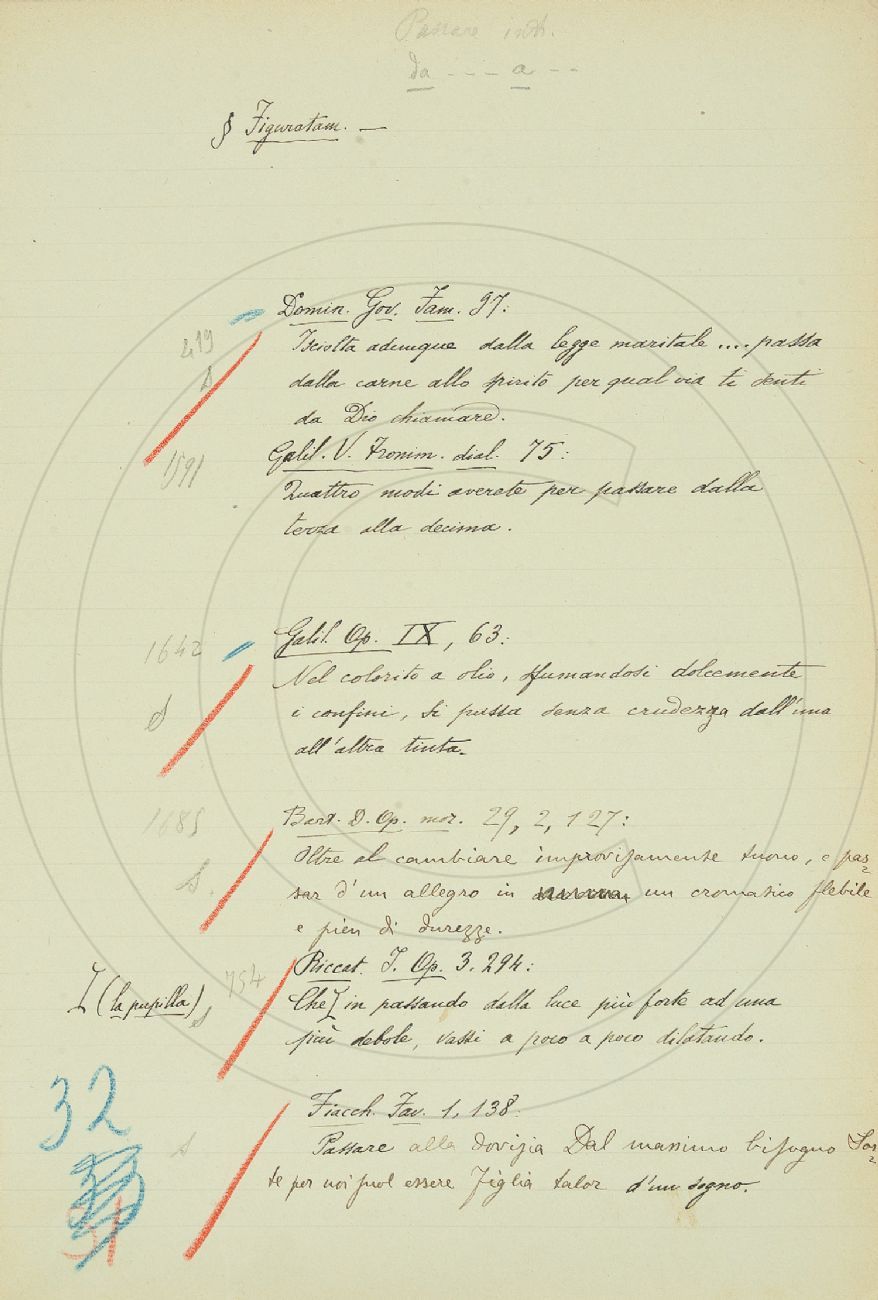 Passare intr.
da --- a --
§ Figuratam. —
Domin. Gov. Fam. 97:
419 Isciolta adunque dalla legge maritale .... passa
S dalla carne allo spirito per qual via ti senti
da Dio chiamare.
Galil. V. Fronim. dial. 75:
1591 Quattro modi averete per passare dalla
terza alla decima.
1642 Galil. Op. IX, 63:
Nel colorito a olio, sfumandosi dolcemente
S i confini, si passa senza crudezza dall'una
all'altra tinta.
1685 Bart. D. Op. mor. 29, 2, 127:
Oltre al cambiare improvisamente tuono, e pas=
S. sar d'un allegro in un cromatico flebile
e pien di durezze.
Riccat. J. Op. 3. 294:
(la pupilla) 754 Che in passando dalla luce più forte ad una
S più debole, vassi a poco a poco dilatando.
32
Fiacch. Fav. 1, 138:
S Passare alla dovizia Dal massimo bisogno Sor=
te per noi suol essere Figlia talor d'un sogno.
31